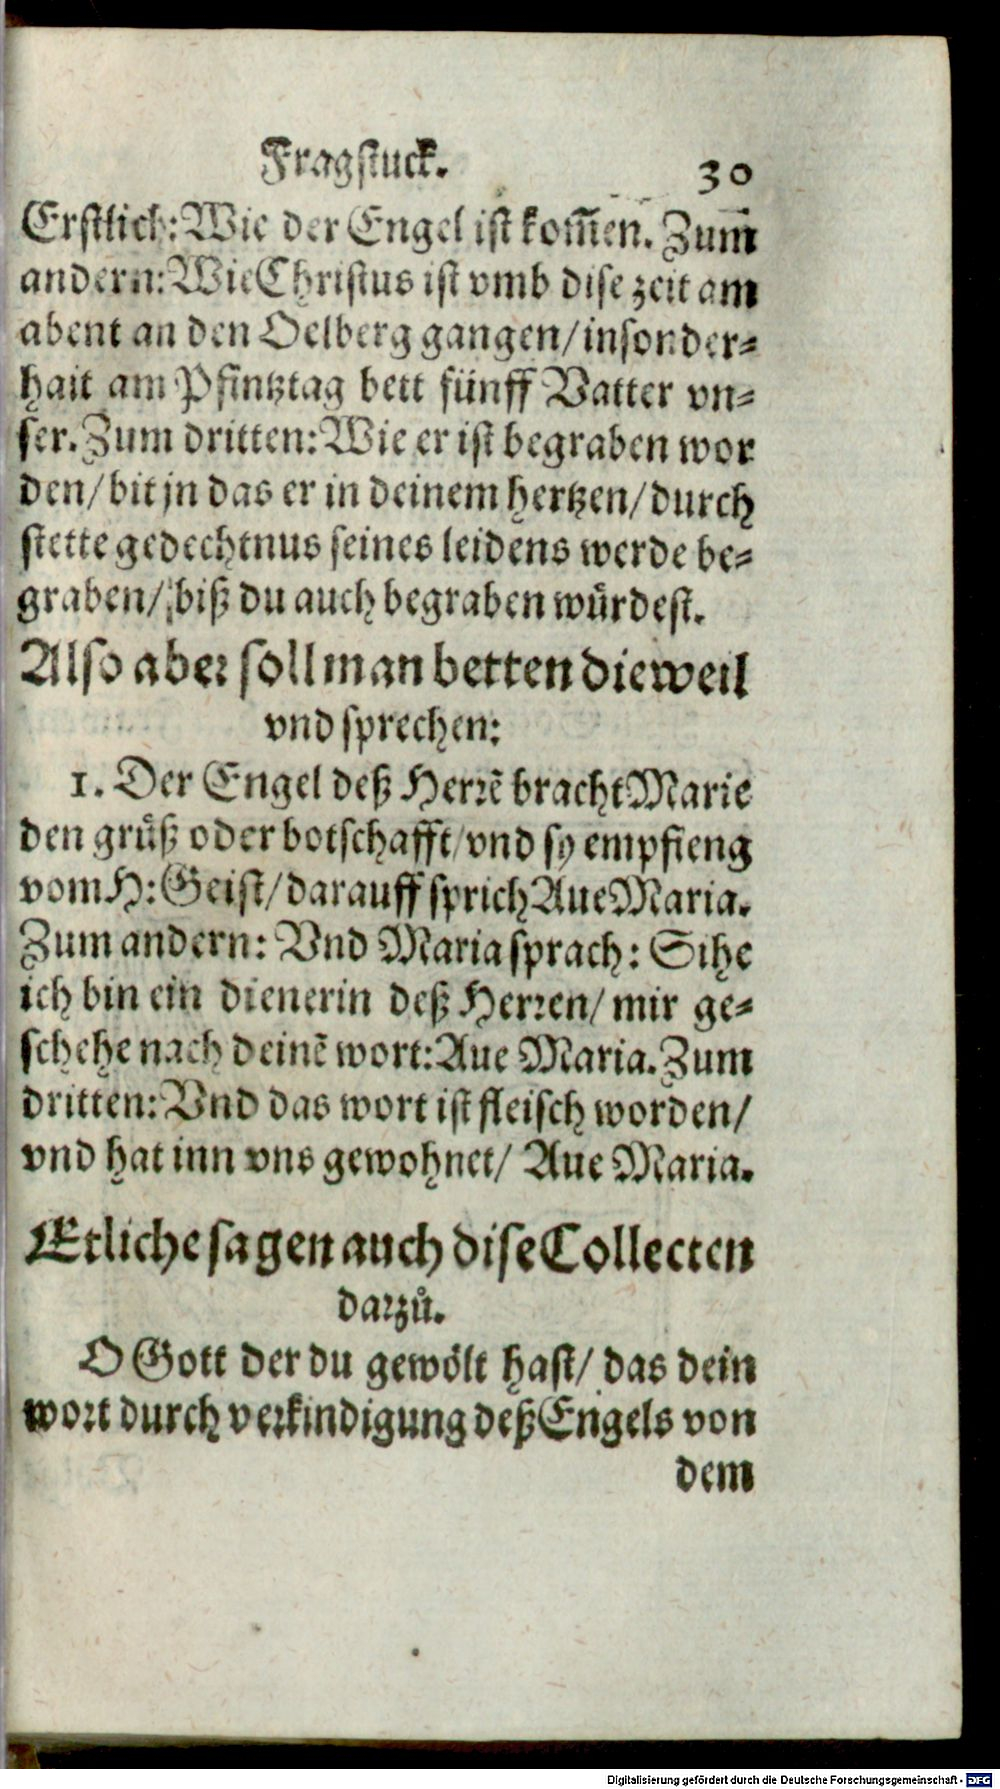 Fragstuck. 30
Erstlich: Wie der Engel ist kom̄en. Zum̄
andern: Wie Christus ist vmb dise zeit am
abent an den Oelberg gangen/ insonder-
hait am Pfintztag bett fünff Vatter vn-
ser. Zum dritten: Wie er ist begraben wor
den/ bit jn das er in deinem hertzen/ durch
stette gedechtnus seines leidens werde be-
graben/ biß du auch begraben wuͤrdest.
Also aber soll man betten dieweil
vnd sprechen:
1. Der Engel deß Herrẽ bracht Marie
den gruͤß oder botschafft/ vnd sy empfieng
vom H: Geist/ darauff sprich Aue Maria.
Zum andern: Vnd Maria sprach: Sihe
ich bin ein dienerin deß Herren/ mir ge-
schehe nach deinẽ wort: Aue Maria. Zum
dritten: Vnd das wort ist fleisch worden/
vnd hat inn vns gewohnet/ Aue Maria.
Etliche sagen auch dise Collecten
darzů.
O Gott der du gewoͤlt hast/ das dein
wort durch verkindigung deß Engels von
dem
Digitalisierung gefördert durch die Deutsche Forschungsgemeinschaft - DFG